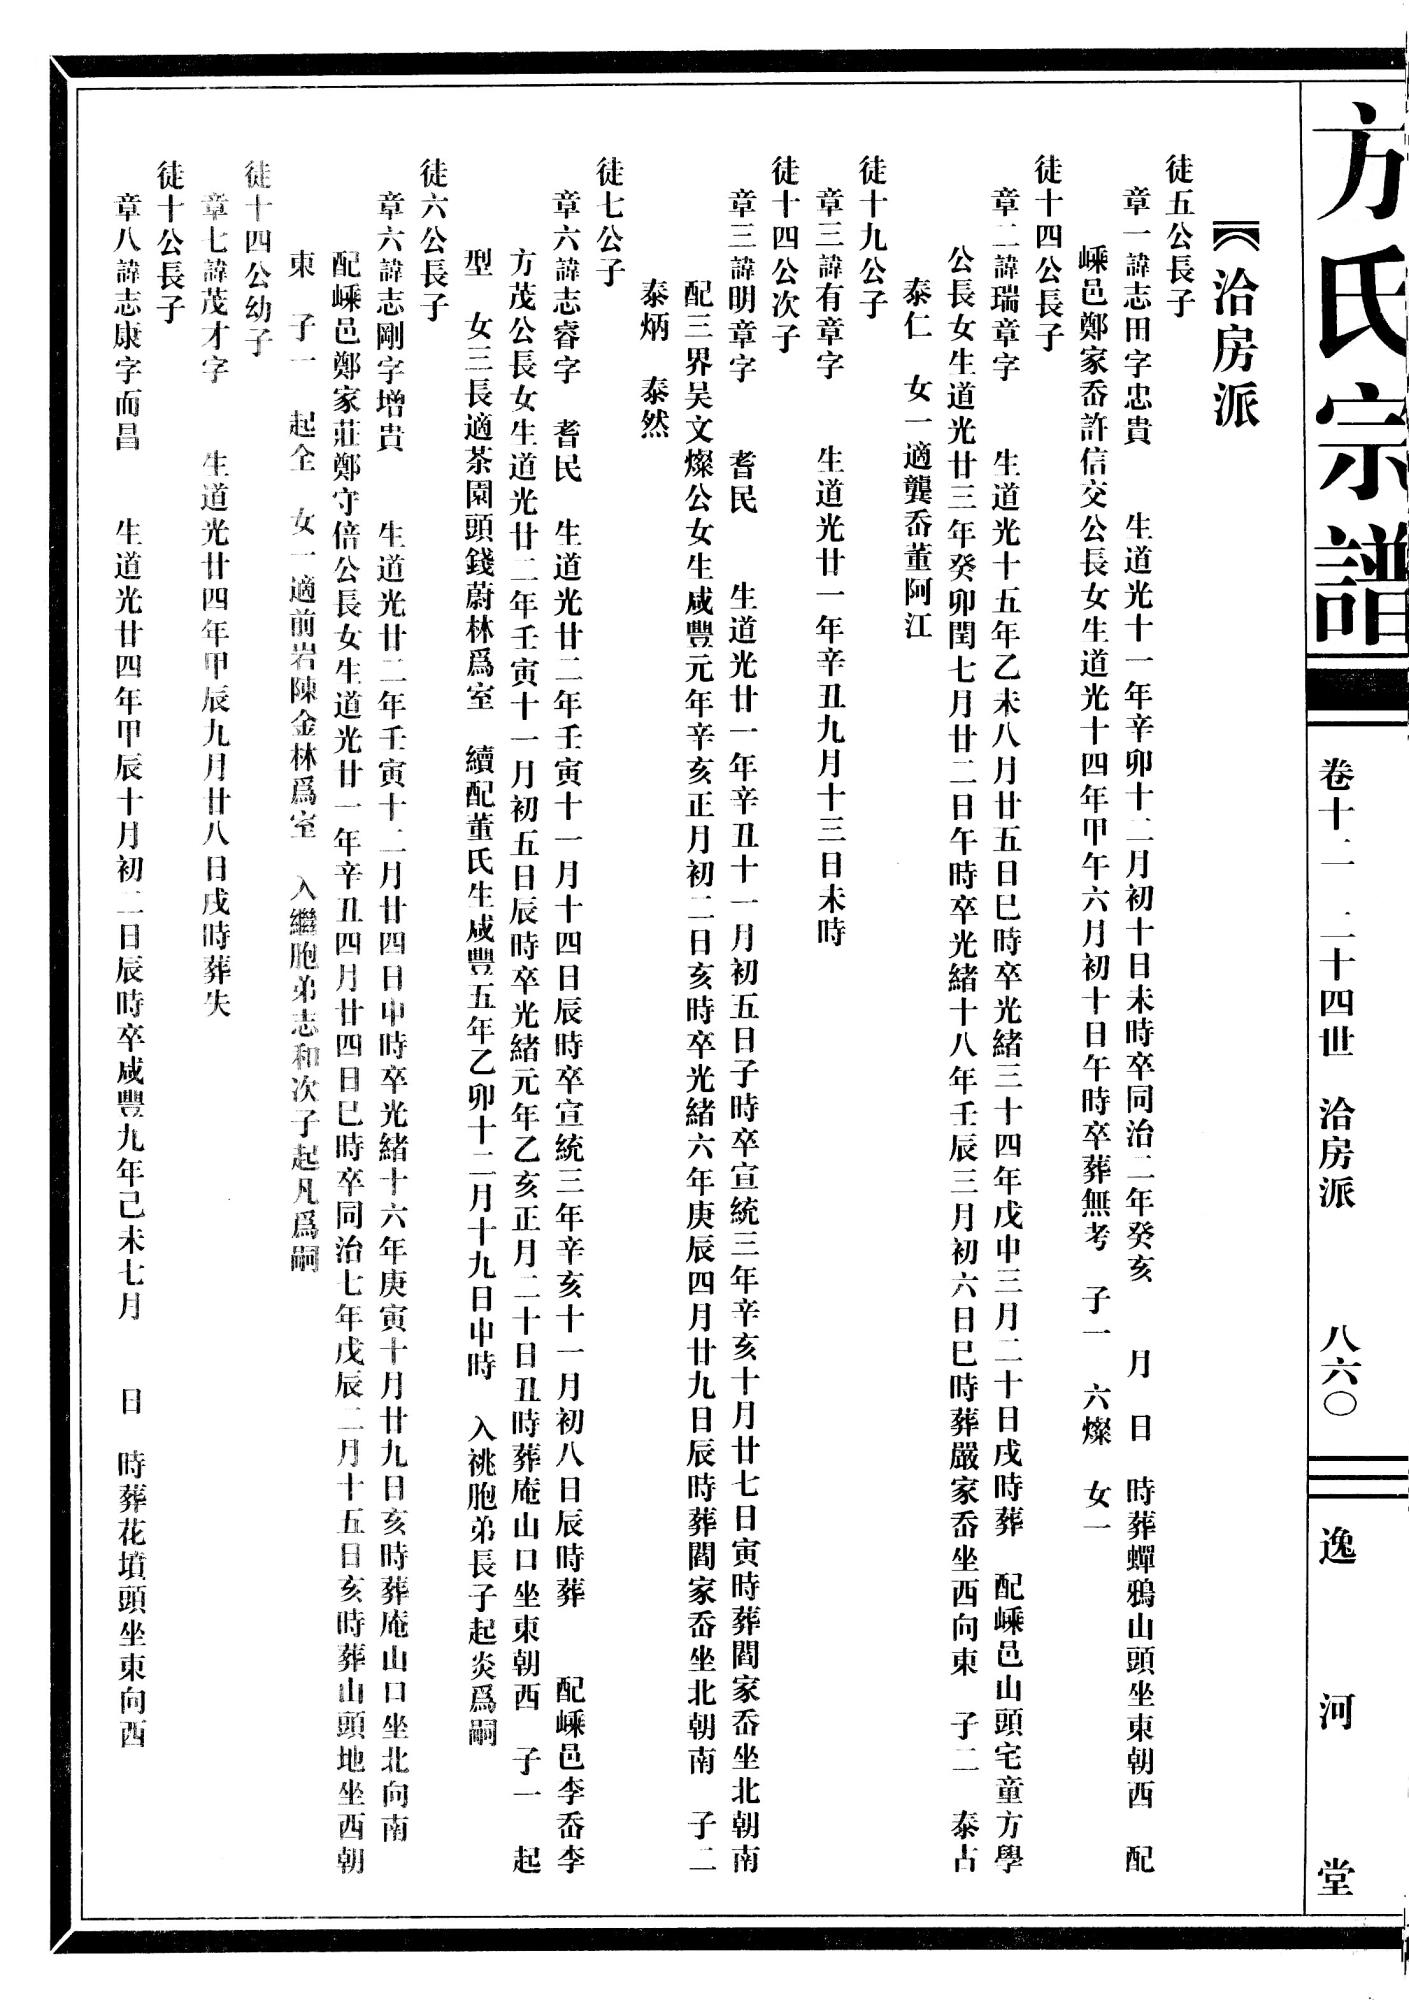 方氏宗譜
卷十二 二十四世 洽房派 八六〇
逸河堂
洽房派
徒五公長子
章一諱志田字忠貴 生道光十一年辛卯十二月初十日未時卒同治二年癸亥 月 日 時葬蟬鴉山頭坐東朝西 配
嵊邑鄭家岙許信交公長女生道光十四年甲午六月初十日午時卒葬無考 子一 六燦 女一
徒十四公長子
章二諱瑞章字 生道光十五年乙未八月廿五日巳時卒光緒三十四年戊申三月二十日戌時葬 配嵊邑山頭宅童方學
公長女生道光廿三年癸卯閏七月廿二日午時卒光緒十八年壬辰三月初六日巳時葬嚴家岙坐西向東 子二 泰占
泰仁 女一適龔岙董阿江
徒十九公子
章三諱有章字 生道光廿一年辛丑九月十三日未時
徒十四公次子
章三諱明章字 耆民 生道光廿一年辛丑十一月初五日子時卒宣統三年辛亥十月廿七日寅時葬閻家岙坐北朝南
配三界吴文燦公女生咸豐元年辛亥正月初二日亥時卒光緒六年庚辰四月廿九日辰時葬閻家岙坐北朝南 子二
泰炳 泰然
徒七公子
章六諱志睿字 耆民 生道光廿二年壬寅十一月十四日辰時卒宣統三年辛亥十一月初八日辰時葬 配嵊邑李岙李
方茂公長女生道光廿二年壬寅十一月初五日辰時卒光緒元年乙亥正月二十日丑時葬庵山口坐東朝西 子一 起
型 女三長適茶園頭錢蔚林爲室 續配董氏生咸豐五年乙卯十二月十九日申時 入祧胞弟長子起炎爲嗣
徒六公長子
章六諱志剛字增貴 生道光廿二年壬寅十二月廿四日申時卒光緒十六年庚寅十月廿九日亥時葬庵山口坐北向南
配嵊邑鄭家莊鄭守倍公長女生道光廿一年辛丑四月廿四日巳時卒同治七年戊辰二月十五日亥時葬山頭地坐西朝
東 子一 起全 女一適前岩陳金林爲室 入繼胞弟志和次子起凡爲嗣
徒十四公幼子
章七諱茂才字 生道光廿四年甲辰九月廿八日戌時葬失
徒十公長子
章八諱志康字而昌 生道光廿四年甲辰十月初二日辰時卒咸豐九年己未七月 日 時葬花墳頭坐東向西